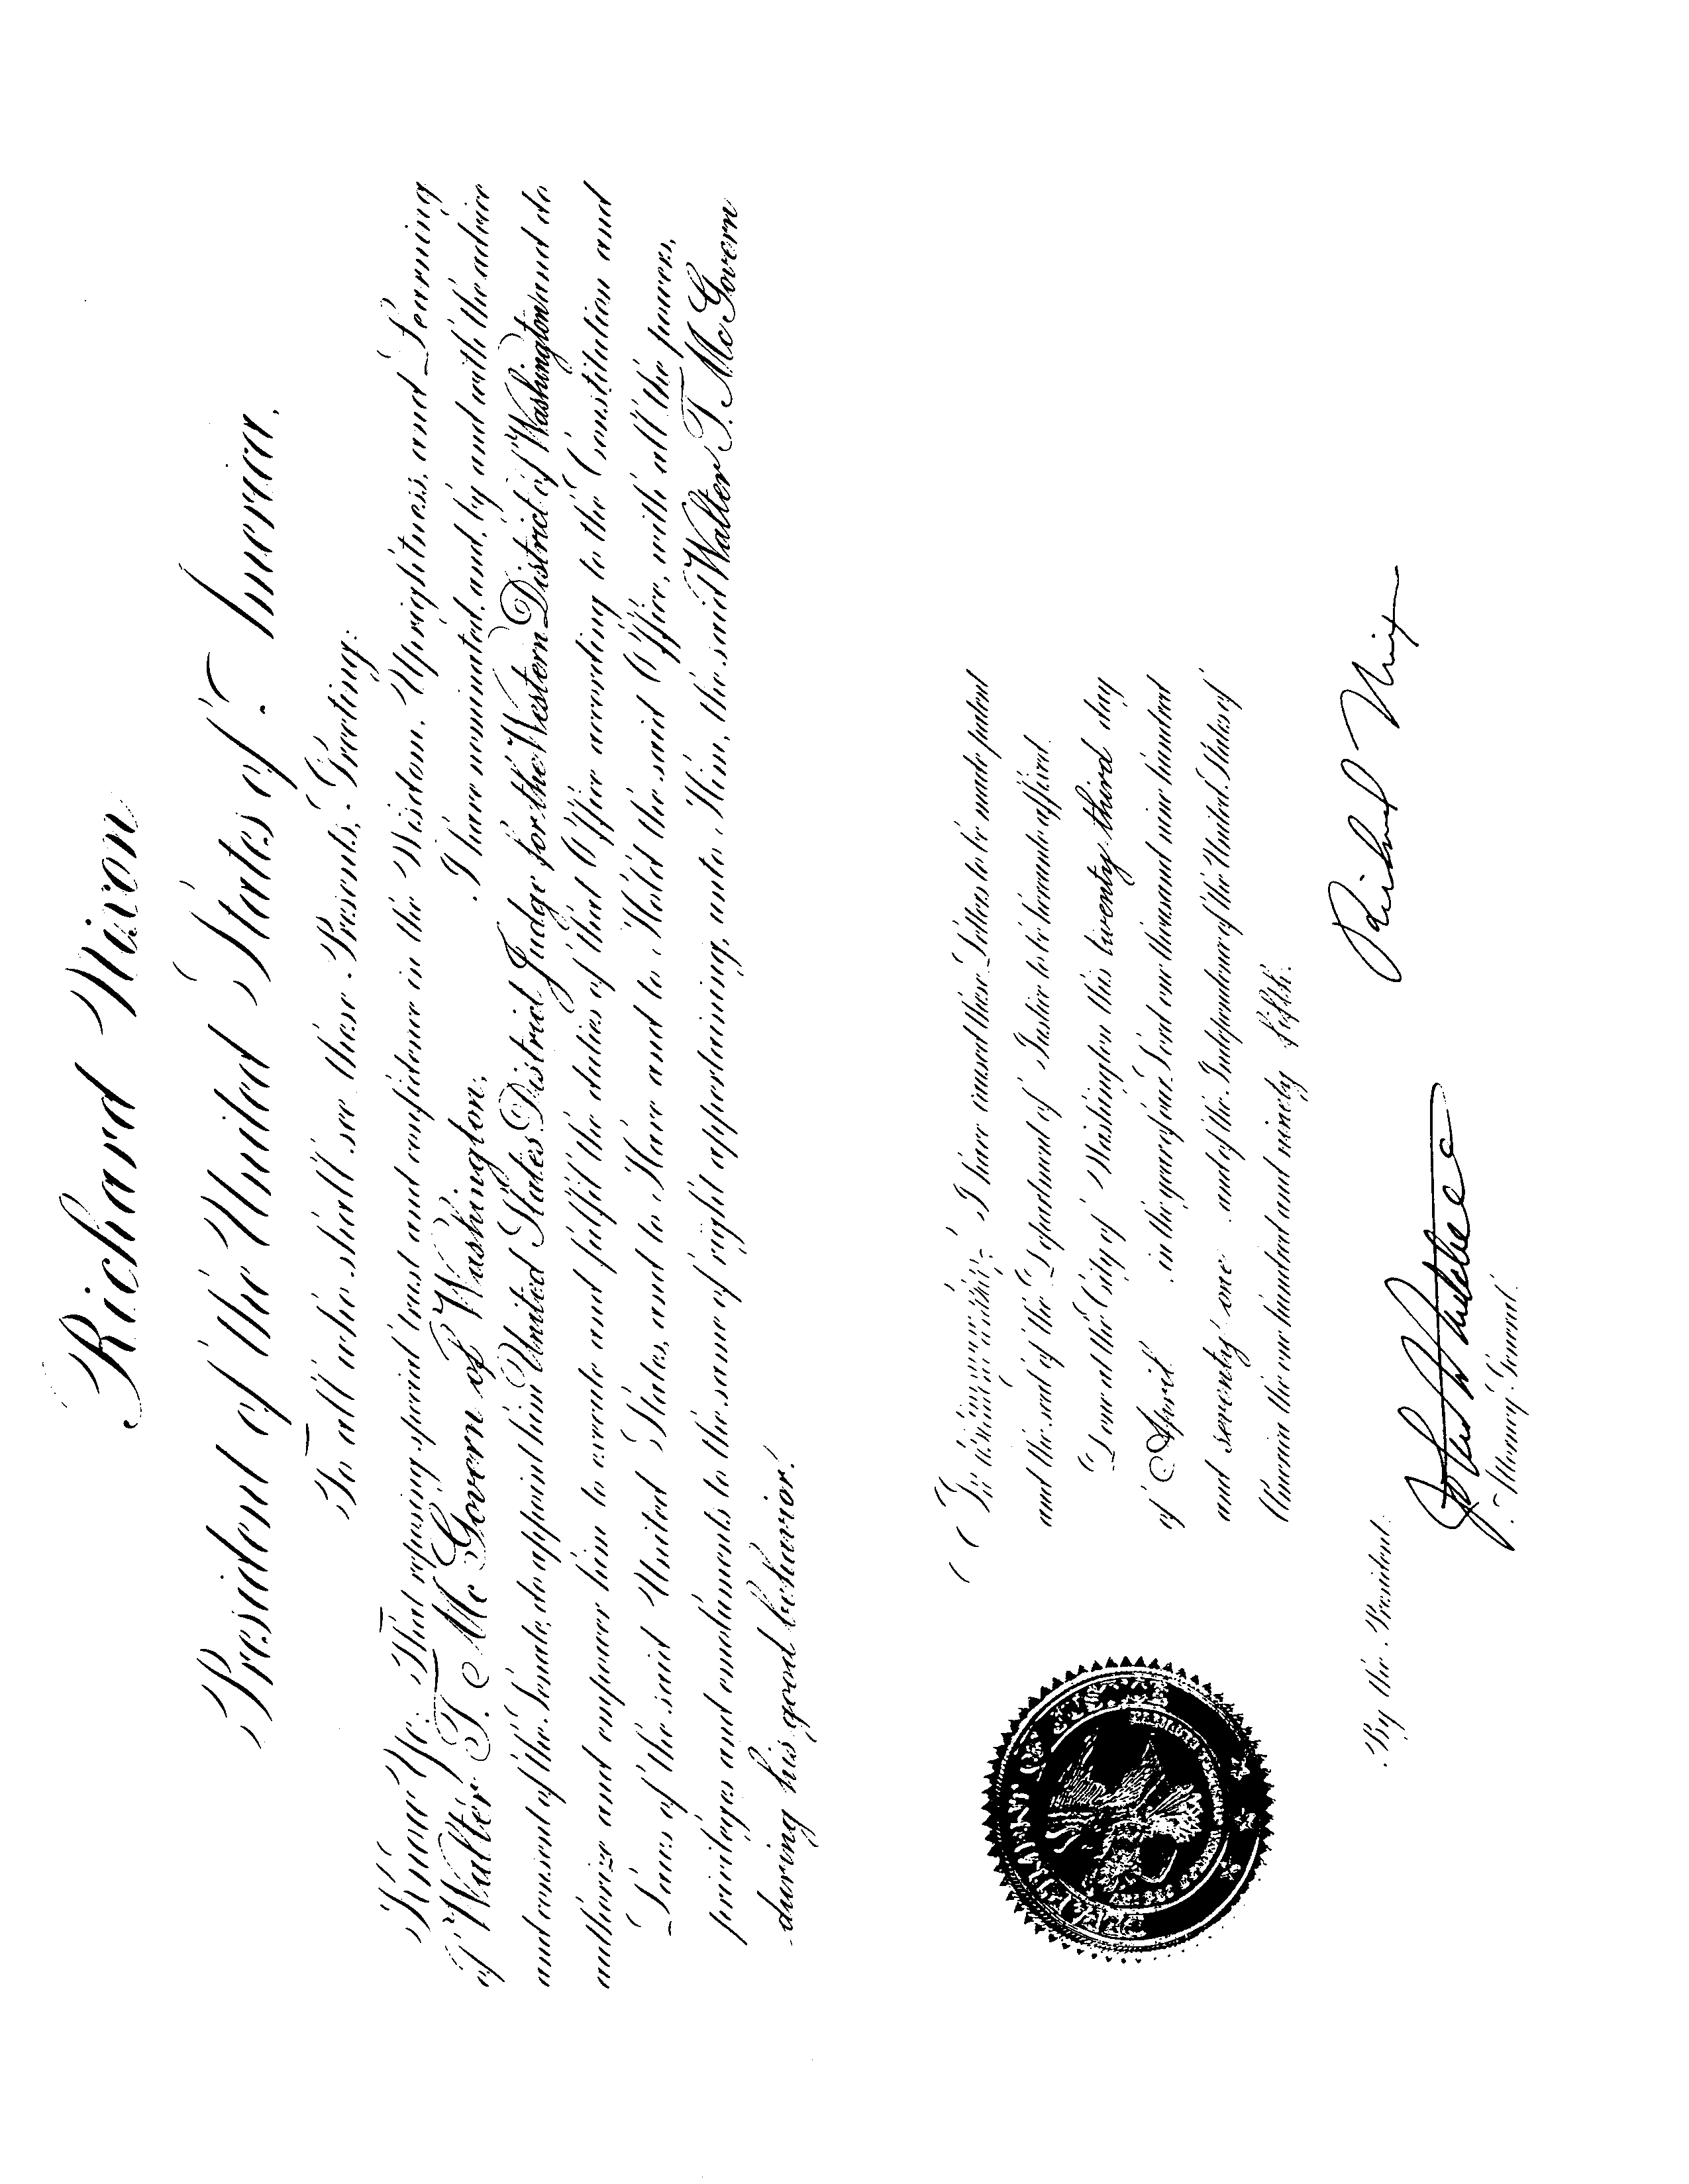 Richard Nixon
President of the United States of America.
To all who shall see these Presents, Greeting:
Know Ye, That reposing special trust and confidence in the Wisdom, Uprightness, and Learning
of Walter T. McGovern of Washington, I have nominated, and, by and with the advice
and consent of the Senate, do appoint him United States District Judge for the Western District of Washington and do
authorize and empower him to execute and fulfil the duties of that Office according to the Constitution and
Laws of the said United States, and to Have and to Hold the said Office, with all the powers,
privileges and emoluments to the same of right appertaining, unto Him, the said Walter T. McGovern
during his good behavior.
In testimony whereof, I have caused these Letters to be made patent
and the seal of the Department of Justice to be hereunto affixed.
Done at the City of Washington this twenty third day
of April in the year of our Lord one thousand nine hundred
and seventy-one and of the Independence of the United States of
America the one hundred and ninety fifth.
Richard Nixon
By the President:
John N. Mitchell
Attorney General.